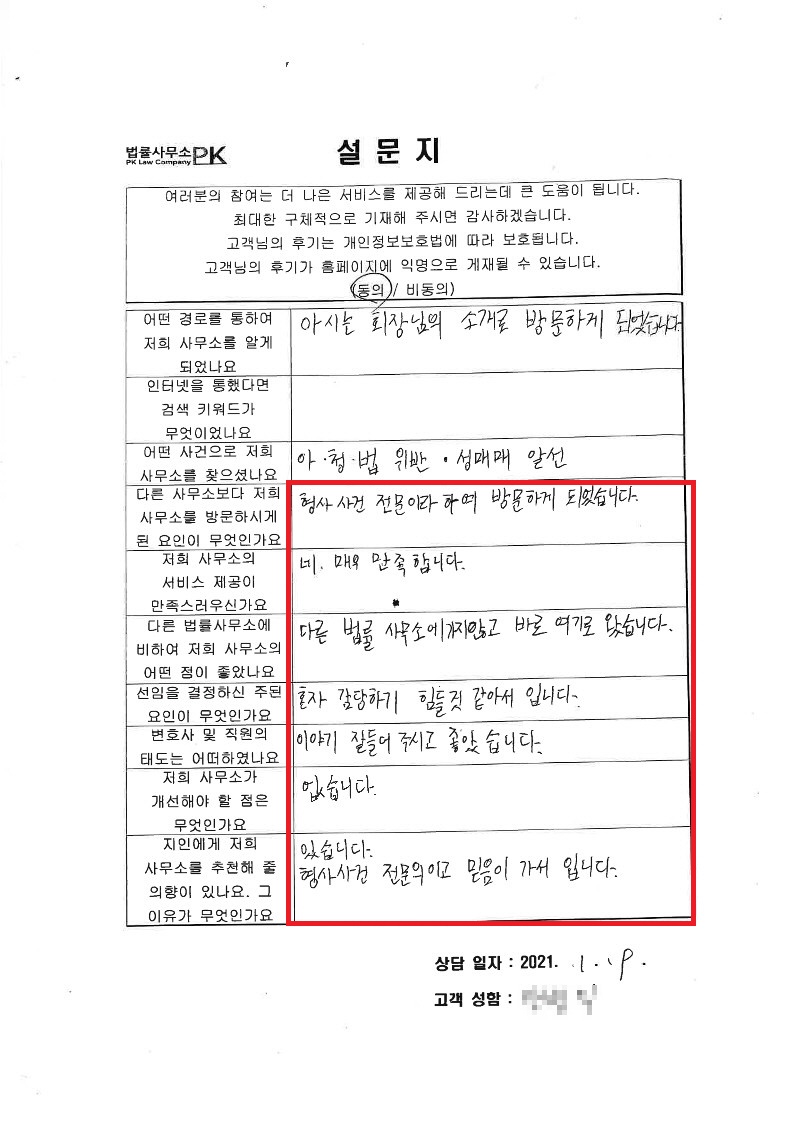 법률사무소PK
PK Law Company
설 문 지
여러분의 참여는 더 나은 서비스를 제공해 드리는데 큰 도움이 됩니다.
최대한 구체적으로 기재해 주시면 감사하겠습니다.
고객님의 후기는 개인정보보호법에 따라 보호됩니다.
고객님의 후기가 홈페이지에 익명으로 게재될 수 있습니다.
(동의 / 비동의)
어떤 경로를 통하여
저희 사무소를 알게
되었나요
아시는 회장님의 소개로 방문하게 되었습니다.
인터넷을 통했다면
검색 키워드가
무엇이었나요
어떤 사건으로 저희
사무소를 찾으셨나요
아·청·법 위반 · 성매매 알선
다른 사무소보다 저희
사무소를 방문하시게
된 요인이 무엇인가요
형사 사건 전문이라 하여 방문하게 되었습니다.
저희 사무소의
서비스 제공이
만족스러우신가요
네. 매우 만족합니다.
다른 법률사무소에
비하여 저희 사무소의
어떤 점이 좋았나요
다른 법률 사무소에가지않고 바로 여기로 왔습니다.
선임을 결정하신 주된
요인이 무엇인가요
혼자 감당하기 힘들것 같아서 입니다.
변호사 및 직원의
태도는 어떠하였나요
이야기 잘들어 주시고 좋았습니다.
저희 사무소가
개선해야 할 점은
무엇인가요
없습니다.
지인에게 저희
사무소를 추천해 줄
의향이 있나요. 그
이유가 무엇인가요
있습니다.
형사사건 전문의이고 믿음이 가서 입니다.
상담 일자 : 2021. 1. 19.
고객 성함 :